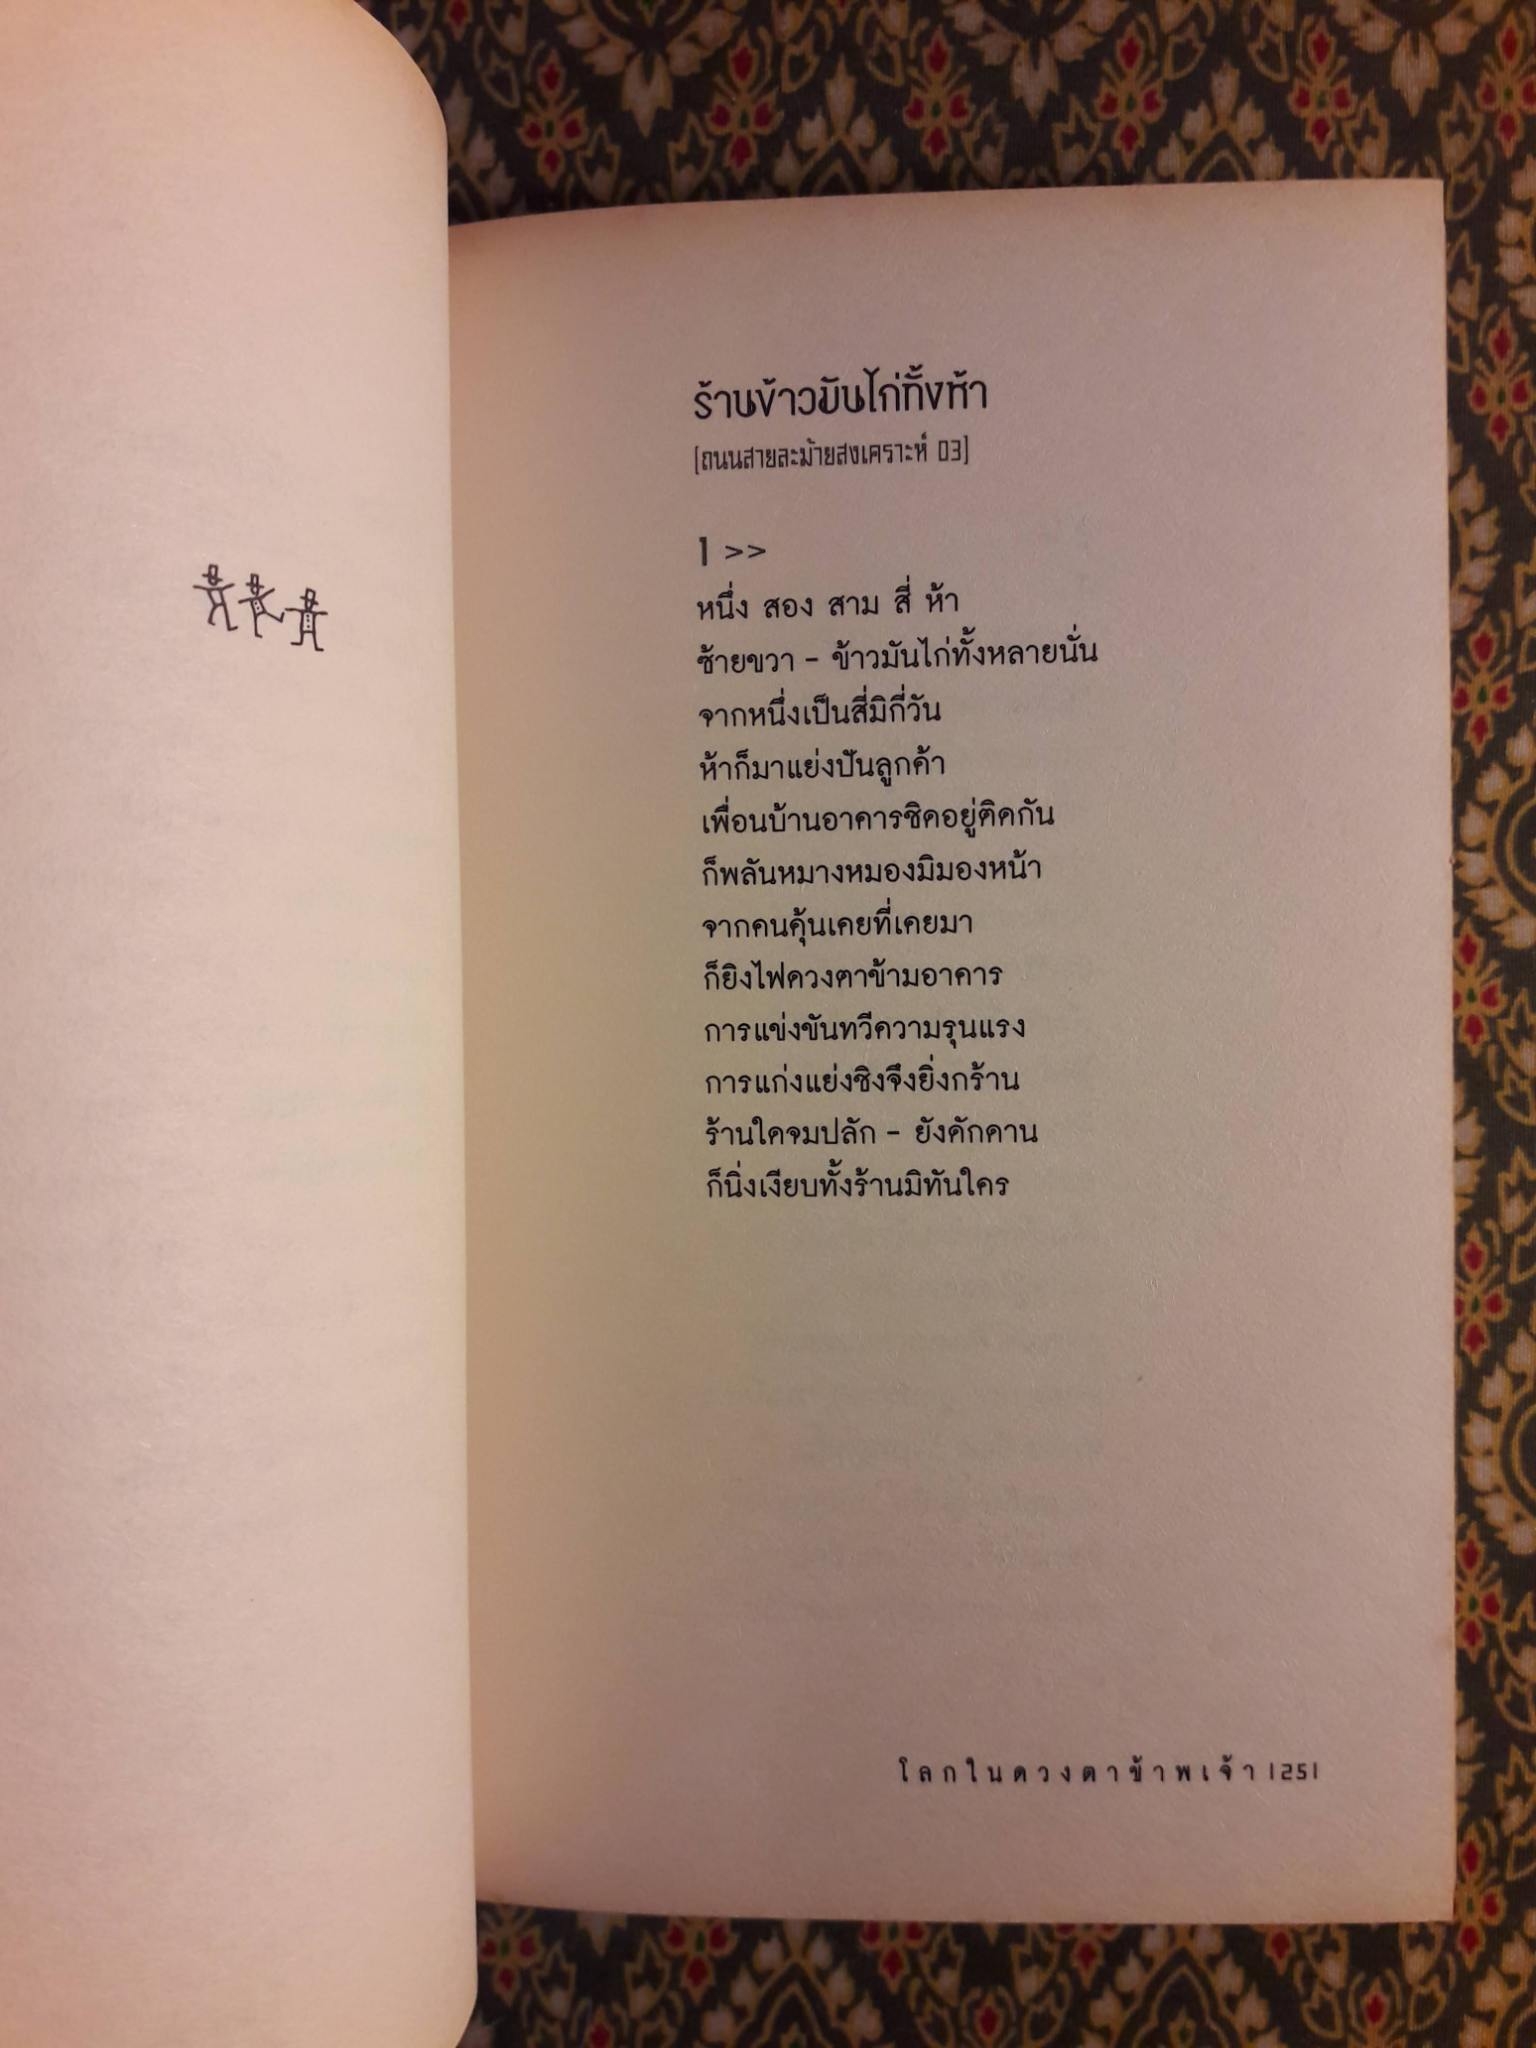 ร้านข้าวมันไก่ทั้งห้า
(ถนนสายละม้ายสงเคราะห์ 03)
1 >>
หนึ่ง สอง สาม สี่ ห้า
ซ้ายขวา - ข้าวมันไก่ทั้งหลายนั่น
จากหนึ่งเป็นสี่มิกี่วัน
ห้าก็มาแย่งปันลูกค้า
เพื่อนบ้านอาคารชิดอยู่ติดกัน
ก็พลันหมางหมองมิมองหน้า
จากคนคุ้นเคยที่เคยมา
ก็ยิงไฟดวงตาข้ามอาคาร
การแข่งขันทวีความรุนแรง
การแก่งแย่งชิงจึงยิ่งกร้าน
ร้านใดจมปลัก - ยังดักดาน
ก็นิ่งเงียบทั้งร้านมิทันใคร
โลกในดวงตาข้าพเจ้า |25|